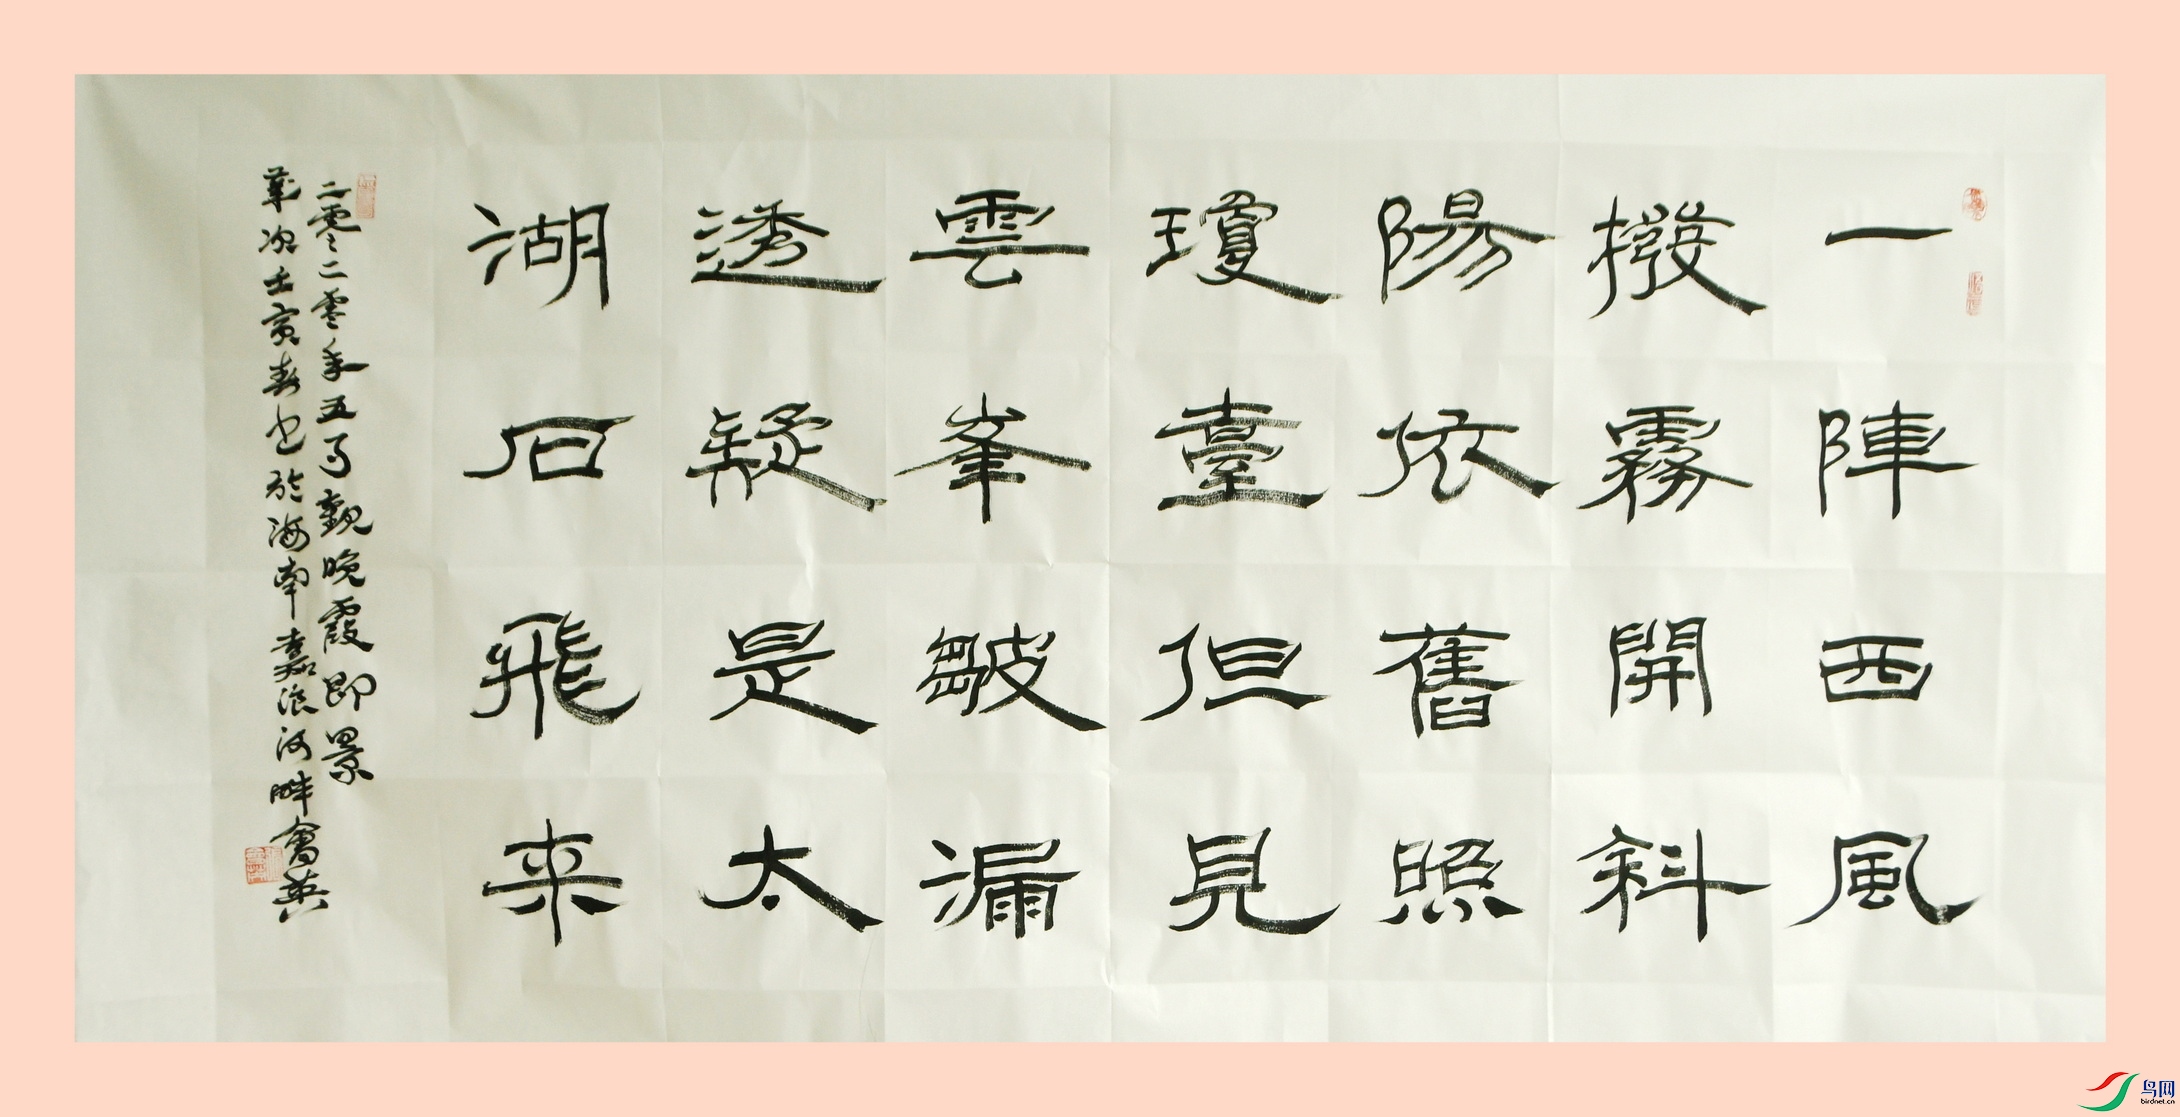 一陣西風
撥霧開斜
陽依舊照
瓊臺但見
雲峯皺漏
透疑是太
湖石飛来
二零二零年五月觀晚霞即景
歲次壬寅春書於海南嘉浪河畔會英
鸟网
birdnet.cn